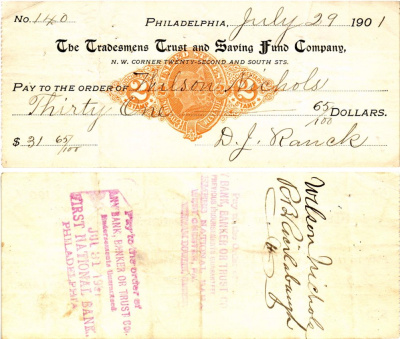 No. 140 PHILADELPHIA, July 29 1901
The Tradesmens Trust and Saving Fund Company,
N. W. CORNER TWENTY-SECOND AND SOUTH STS.
PAY TO THE ORDER OF Wilson Nichols
Thirty One 65/100 DOLLARS.
$ 31 65/100 D. J. Ranck
2 STAMP 2 STAMP
Wilson Nichols
Pay to the order of
ANY BANK, BANKER OR TRUST CO.
Endorsements Guaranteed
JUL 31
FIRST NATIONAL BANK,
PHILADELPHIA
BANKER OR TRUST